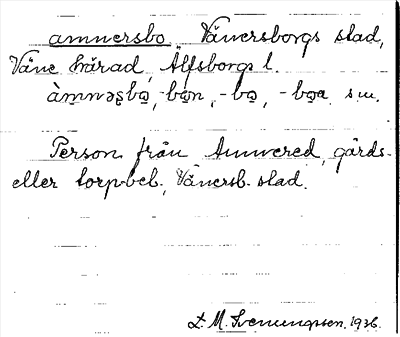 amnersbo Vänersborgs stad,
Väne härad, Älfsborgs l.
àm̥nəʂbo̯, -bo̯n, -bo̯, -bo̯a s.m.
Person från Amnered, gårds-
eller torpbeb., Vänersb. stad.
L. M. Svenungsson. 1936.